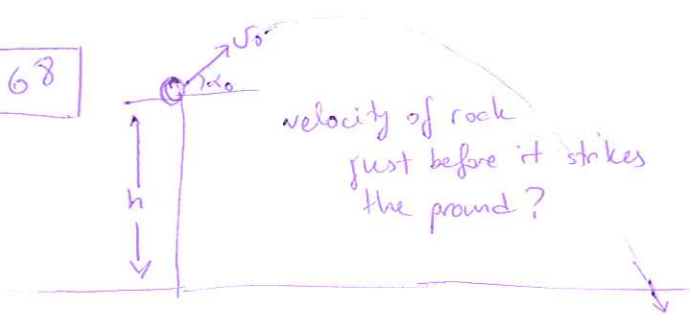 68
v₀
α₀
h
velocity of rock
just before it strikes
the ground?